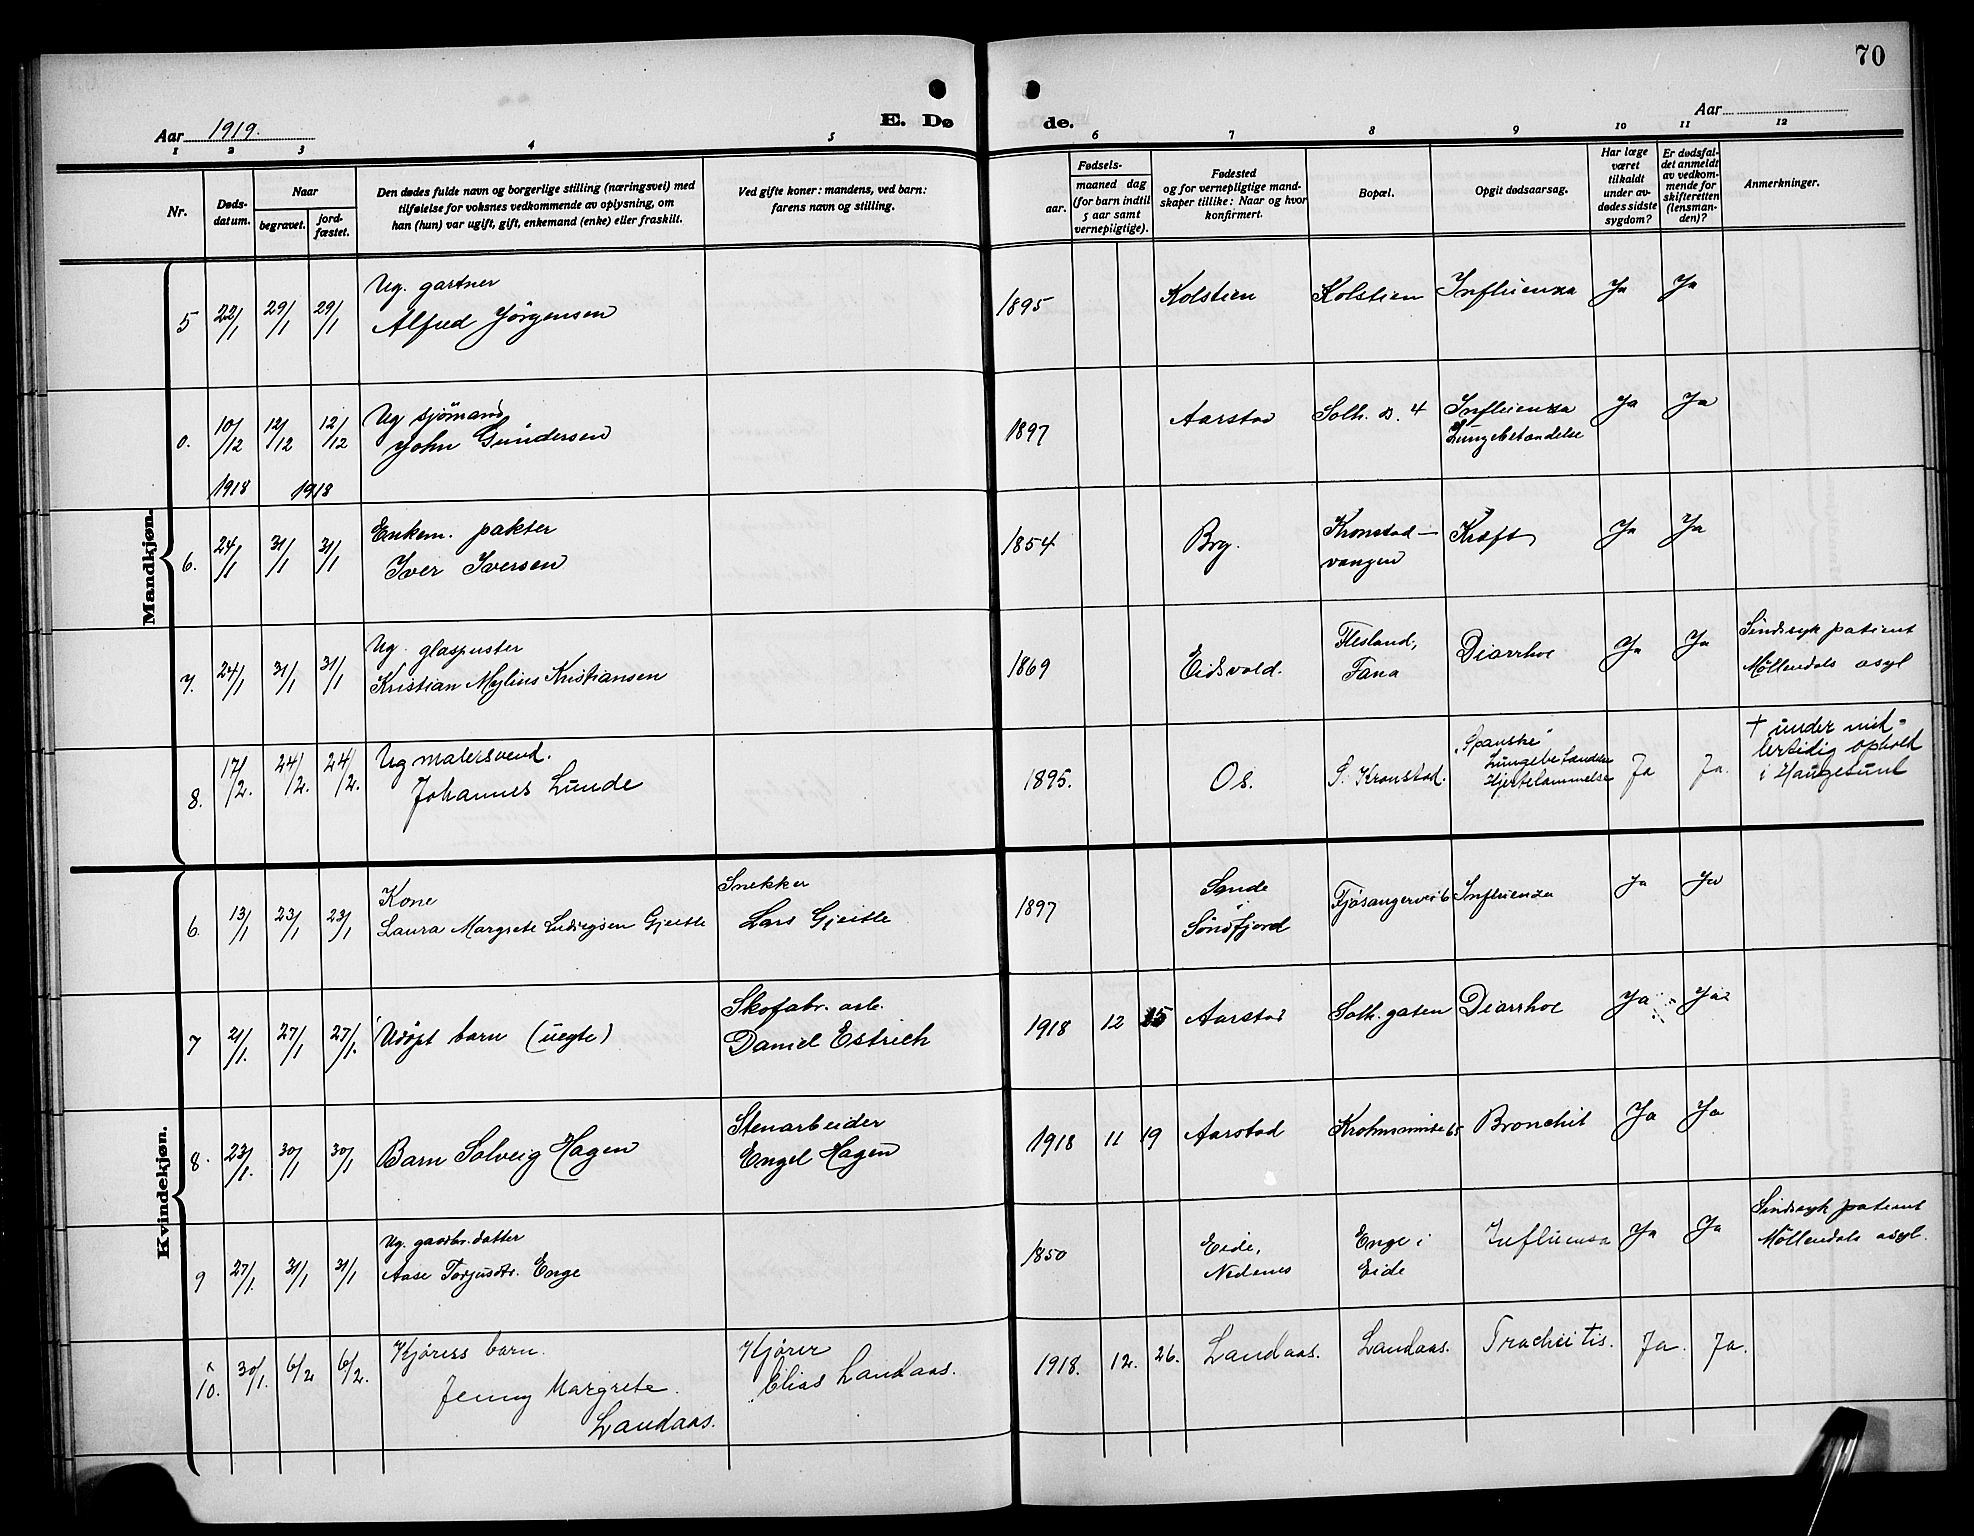 70
Aar 1919.
E. Dø de.
Aar
1 2 3 4 5 6 7 8 9 10 11 12
Nr.
Døds-
datum.
Naar
begravet.
jord-
fæstet.
Den dødes fulde navn og borgerlige stilling (næringsvei) med
tilføielse for voksnes vedkommende av oplysning, om
han (hun) var ugift, gift, enkemand (enke) eller fraskilt.
Ved gifte koner: mandens, ved barn:
farens navn og stilling.
Fødsels-
aar.
maaned dag
(for barn indtil
5 aar samt
vernepligtige).
Fødested
og for vernepligtige mand-
skaper tillike: Naar og hvor
konfirmert.
Bopæl.
Opgit dødsaarsag.
Har læge
været
tilkaldt
under av-
dødes sidste
sygdom?
Er dødsfal-
det anmeldt
av vedkom-
mende for
skifteretten
(lensman-
den)?
Anmerkninger.
Mandkjøn.
Ug. gartner
5 22/1 29/1 29/1 Alfred Jörgensen 1895 Kolstien Kolstien Influensa Ja Ja
Ug sjömand
0. 10/12 12/12 12/12 John Gundersen 1897 Aarstad Solh. B. 4 Influensa Ja Ja
Lungebetændelse
1918 1918
Enkem. pakter
6. 24/1 31/1 31/1 Iver Iversen 1854 Brg. Kronstad- Kræft Ja Ja
vangen
Ug. glaspuster
7. 24/1 31/1 31/1 Kristian Mylius Kristiansen 1869 Eidsvold. Flesland, Diarrhoe Ja Ja Sindssyk patient
Fana Möllendals asyl
Ug malersvend.
8. 17/2. 24/2. 24/2. Johannes Lunde 1895. Os. S. Kronstad. "Spanske" Ja Ja. † under mid-
Lungebetændelse lertidig ophold
Hjertelammelse i Haugesund
Kvindekjøn.
Kone Snekker
6. 13/1 23/1 23/1 Laura Margrete Ludvigsen Gjeitle Lars Gjeitle 1897 Sande Fjøsangervei 6 Influensa Ja Ja
Söndfjord
Skofabr. arb.
7 21/1. 27/1 27/1. Udöpt barn (uegte) Daniel Estrich 1918 12 25 Aarstad Solh. gaten Diarrhoe Ja Ja
Stenarbeider
8. 23/1. 30/1 30/1 Barn Solveig Hagen Engel Hagen 1918 11 19 Aarstad Krohnsminde 65 Bronchit Ja Ja
Ug. gaardbr. datter
9 27/1. 31/1 31/1 Aase Torjusdtr. Enge 1850 Eide, Enge i Influensa Ja Ja Sindssyk patient
Nedenes Eide Möllendals asyl.
Kjörers barn. Kjörer
10. 30/1. 6/2 6/2. Jenny Margrete Elias Landaas. 1918. 12. 26. Landaas. Landaas. Tracheitis. Ja. Ja.
Landaas.